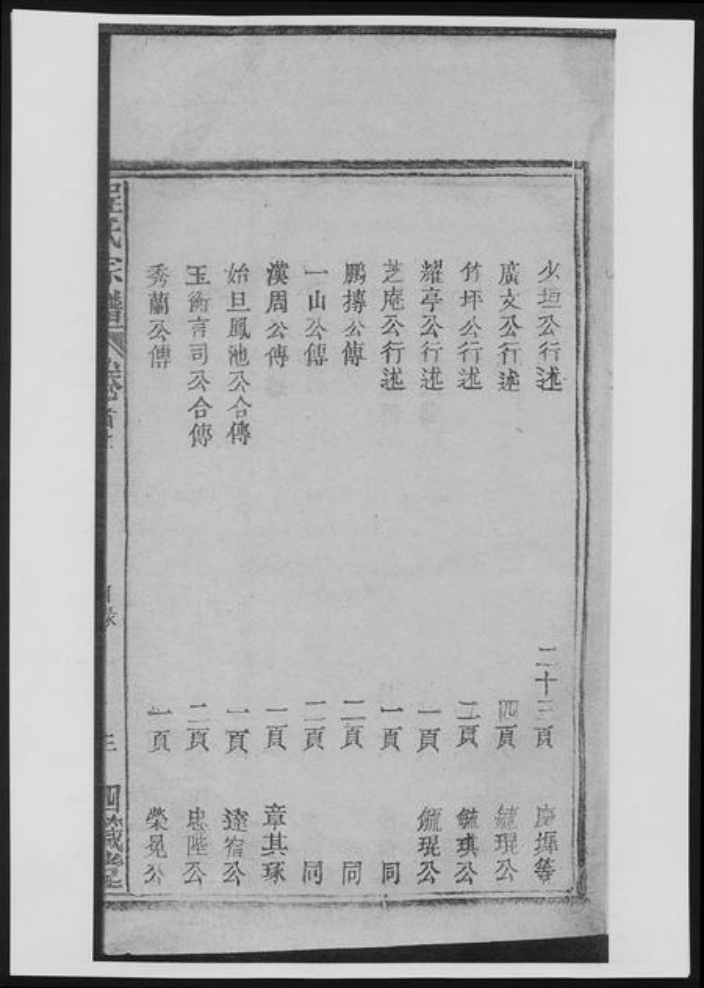 少垣公行述 二十三頁 慶墀等
廣文公行述 四頁 毓琨公
竹坪公行述 二頁 毓琪公
耀亭公行述 一頁 毓琨公
芝庵公行述 一頁 同
鵬摶公傳 二頁 同
一山公傳 二頁 同
漢周公傳 一頁 章其琢
始旦鳳池公合傳 一頁 達宿公
玉衡言司公合傳 二頁 忠陛公
秀蘭公傳 一頁 榮晃公
氏宗譜 卷首上 目錄 三